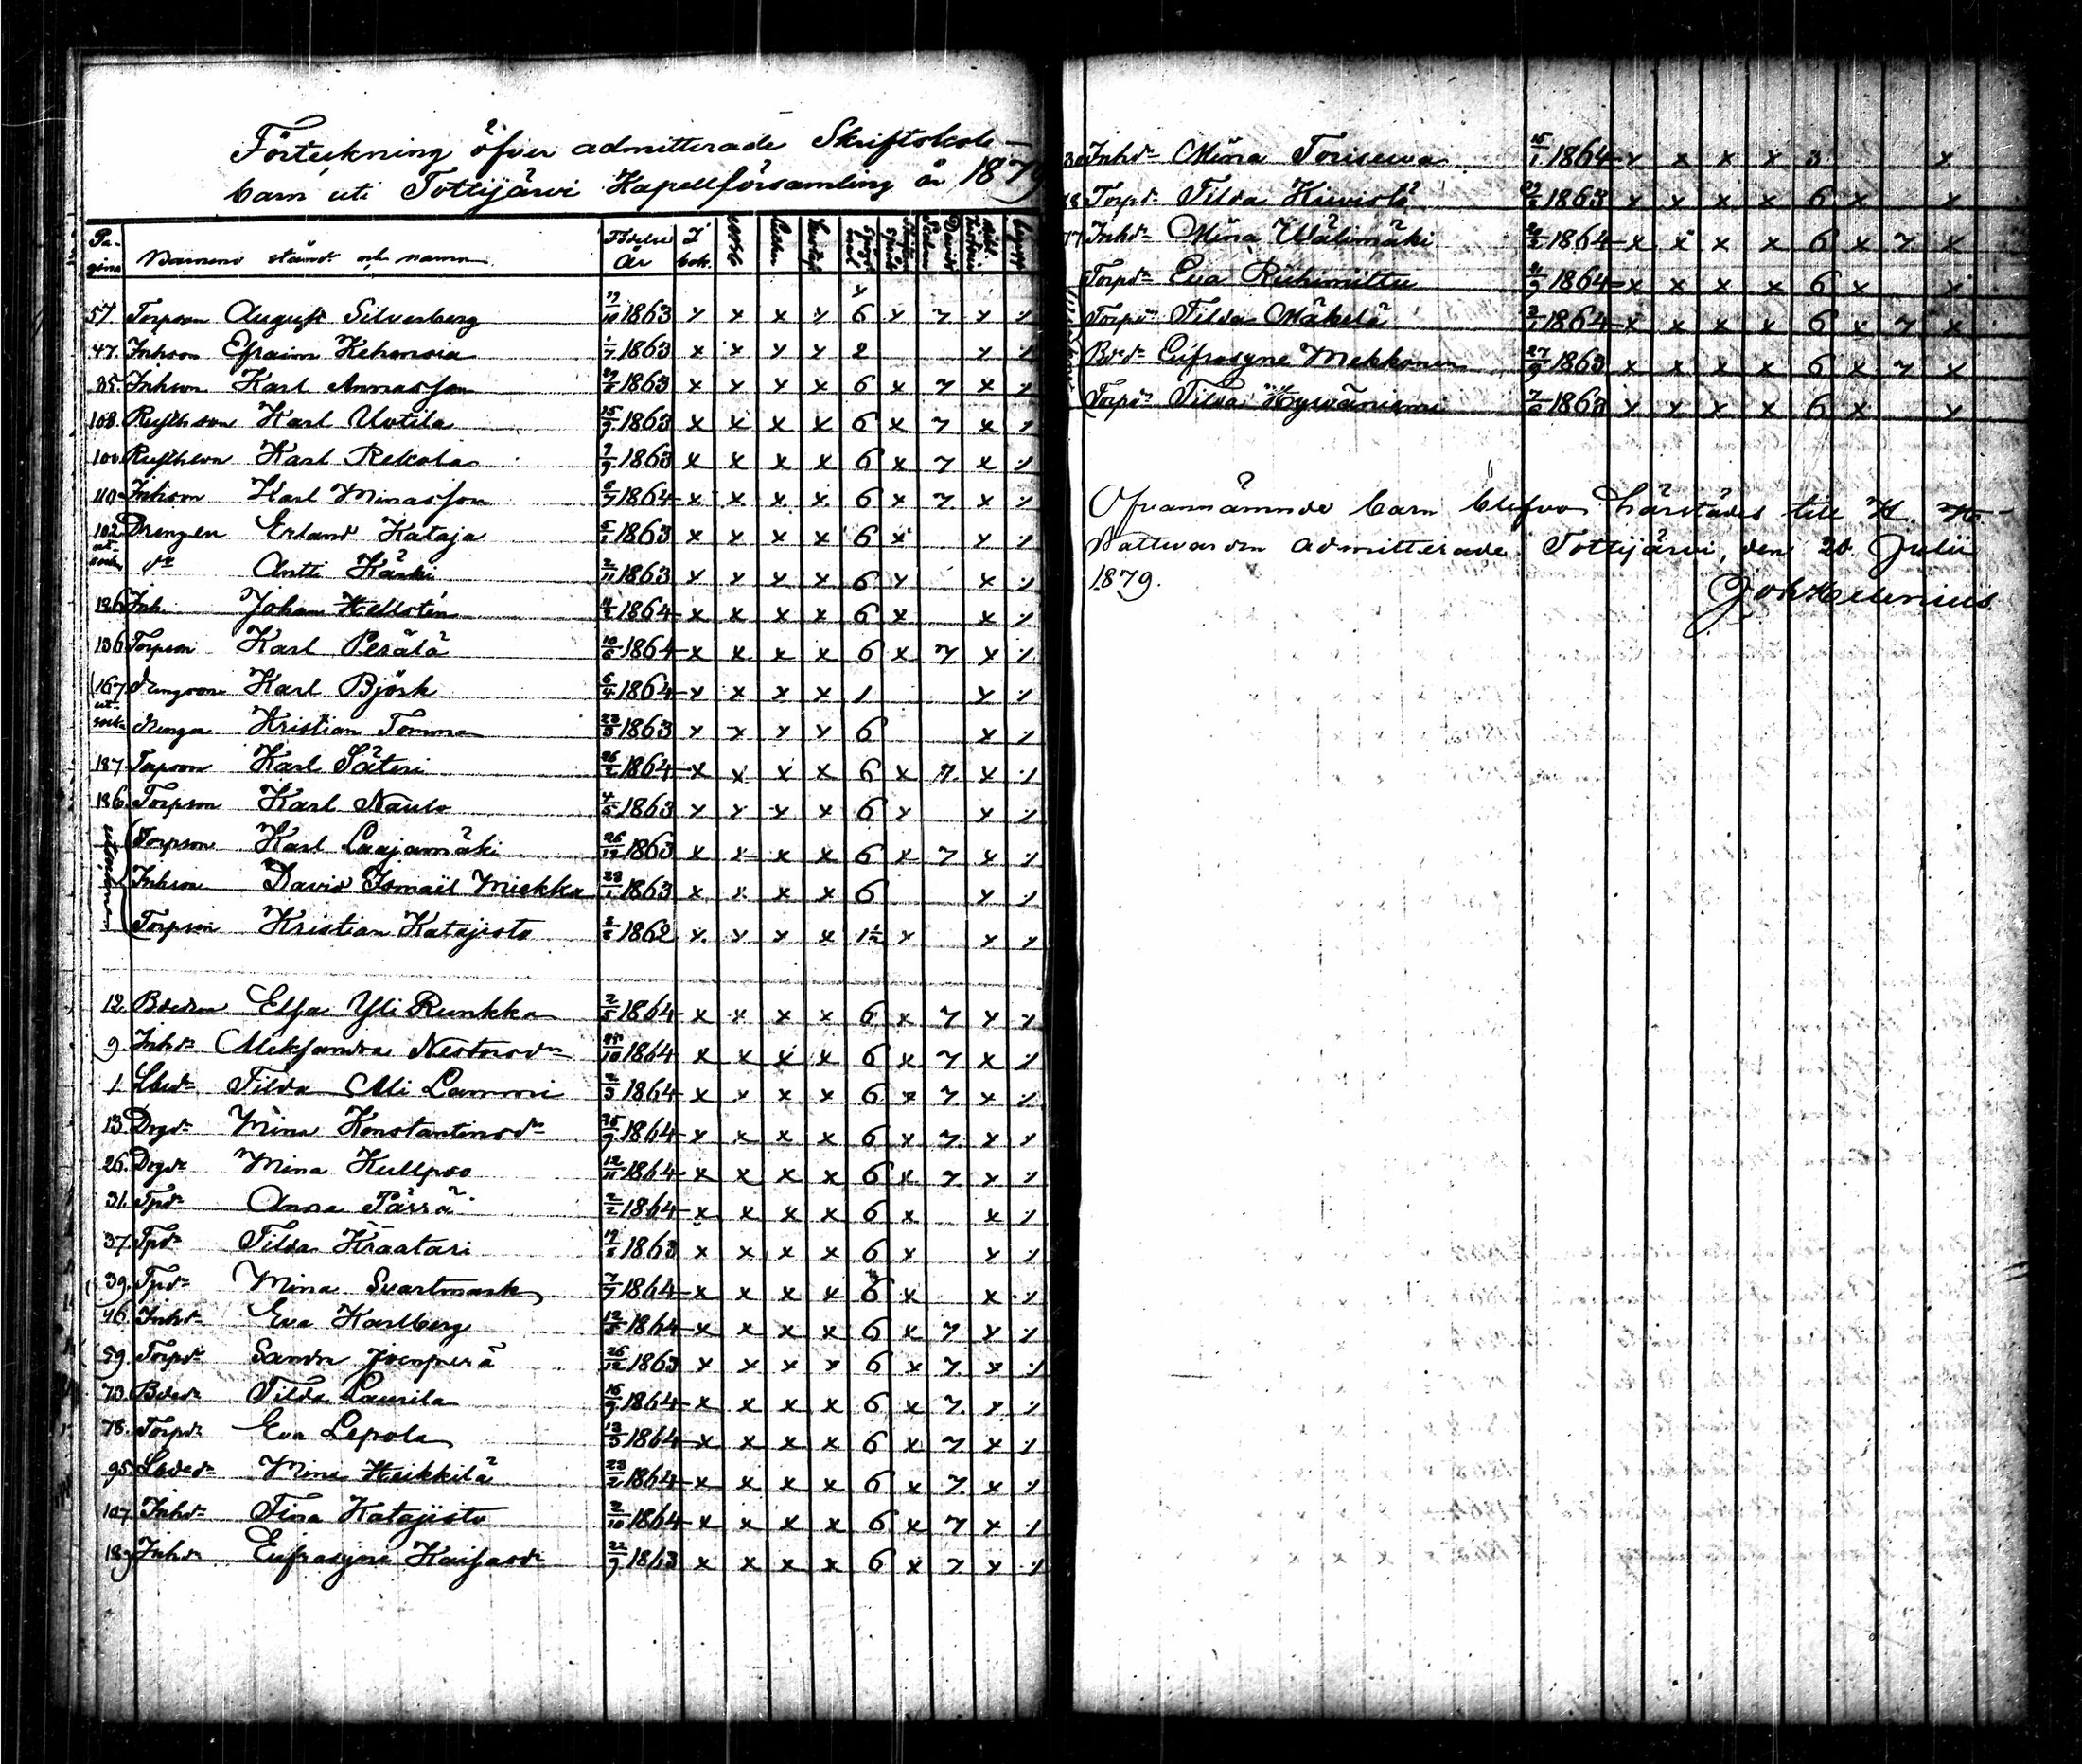 Förteckning öfver admitterade Skriftskole-
barn uti Tottijärvi Kapellförsamling år 1879
Pa-gina Barnens stånd och namn Födelse År I bok.
57 Torpson August Silverberg 19/10 1863 x x x x 6 x 7 x x
47. Inhson Efraim Kehonoia 1/7 1863 x x x x 2 x x
25. Inhson Karl Annasson 1863 x x x x 6 x 7 x x
108. Karl Uotila 15/9 1863 x x x x 6 x 7 x x
100 Karl Rekola 7/9 1863 x x x x 6 x 7 x x
110 Inhson Karl Minasson 6/7 1864 x x x x 6 x 7 x x
102 Drengen Erland Kataja 5/1 1863 x x x x 6 x x x
do Antti Käski 2/11 1863 x x x x 6 x x x
126 Inh. Johan Hellstén 11/2 1864 x x x x 6 x x x
136 Torpson Karl Perälä 10/6 1864 x x x x 6 x 7 x x
167 Karl Björk 6/4 1864 x x x x 1 x x
Drengen Kristian Tomma 22/5 1863 x x x x 6 x x
187 Torpson Karl Säteri 26/2 1864 x x x x 6 x 7. x x
186. Torpson Karl Naulo 4/5 1863 x x x x 6 x x x
Torpson Karl Laajamäki 26/12 1863 x x x x 6 x 7 x x
Inhson David Ismaïl Miekka 23/1 1863 x x x x 6 x x
Torpson Kristian Katajisto 1862 x x x x 1½ x x x
12. Elsa Yli Runkka 2/5 1864 x x x x 6 x 7 x x
9. Inhdr Aleksandra Nestorsdr 1864 x x x x 6 x 7. x x
1 Tilda Ali Lammi 2/3 1864 x x x x 6 x 7. x x
13. Drgdr Mina Konstantinsdr 25/9 1864 x x x x 6 x 7. x x
26. Drgdr Mina Kullpoo 12/11 1864 x x x x 6 x 7. x x
31. Tpdr Anna Pärrä 2/2 1864 x x x x 6 x x x
37. Tpdr Tilda Kraatari 1863 x x x x 6 x x x
39. Tpdr Mina Svartmark 7/7 1864 x x x x 6 x x x
46. Inhdr Eva Karlberg 12/5 1864 x x x x 6 x 7 x x
59. Torpdr Sandra Joenperä 26/12 1863 x x x x 6 x 7. x x
73. Tilda Laurila 16/9 1864 x x x x 6 x 7. x x
78. Torpdr Eva Lepola 13/3 1864 x x x x 6 x 7 x x
95. Mina Heikkilä 23/2 1864 x x x x 6 x 7. x x
107. Inhdr Fina Katajisto 2/10 1864 x x x x 6 x 7 x x
Inhdr Eufrasyne Kaisasdr 22/9 1863 x x x x 6 x 7 x x
Inhdr Mina Toriseva 15/1 1864 x x x x 3 x
Torpdr Tilda Kivistö 1863 x x x x 6 x x
Inhdr Mina Wälimäki 1864 x x x x 6 x 7 x
Torpdr Eva Riihiniittu 1864 x x x x 6 x x
Torpdr Tilda Mäkelä 1864 x x x x 6 x 7 x
Eufrasyne Mekkonen 27/9 1863 x x x x 6 x 7 x
Torpdr Tilda Hyväniemi 7/6 1863 x x x x 6 x x
Ofvannämnde barn blefvo härstädes till H. H.
Nattvarden admitterade. Tottijärvi, den 20 Julii
1879.
Joh Helenius